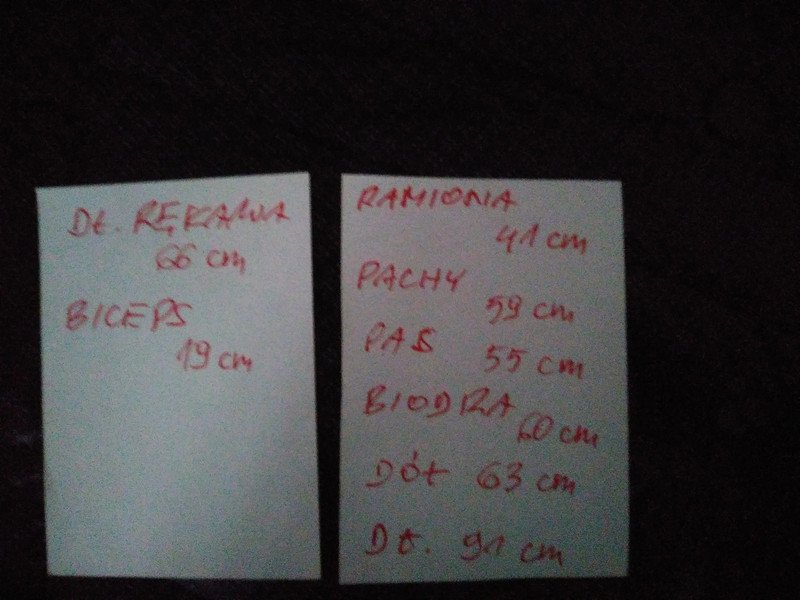 DŁ. RĘKAWA
66 cm
BICEPS
19 cm
RAMIONA
41 cm
PACHY
59 cm
PAS 55 cm
BIODRA
60 cm
DÓŁ 63 cm
DŁ. 91 cm